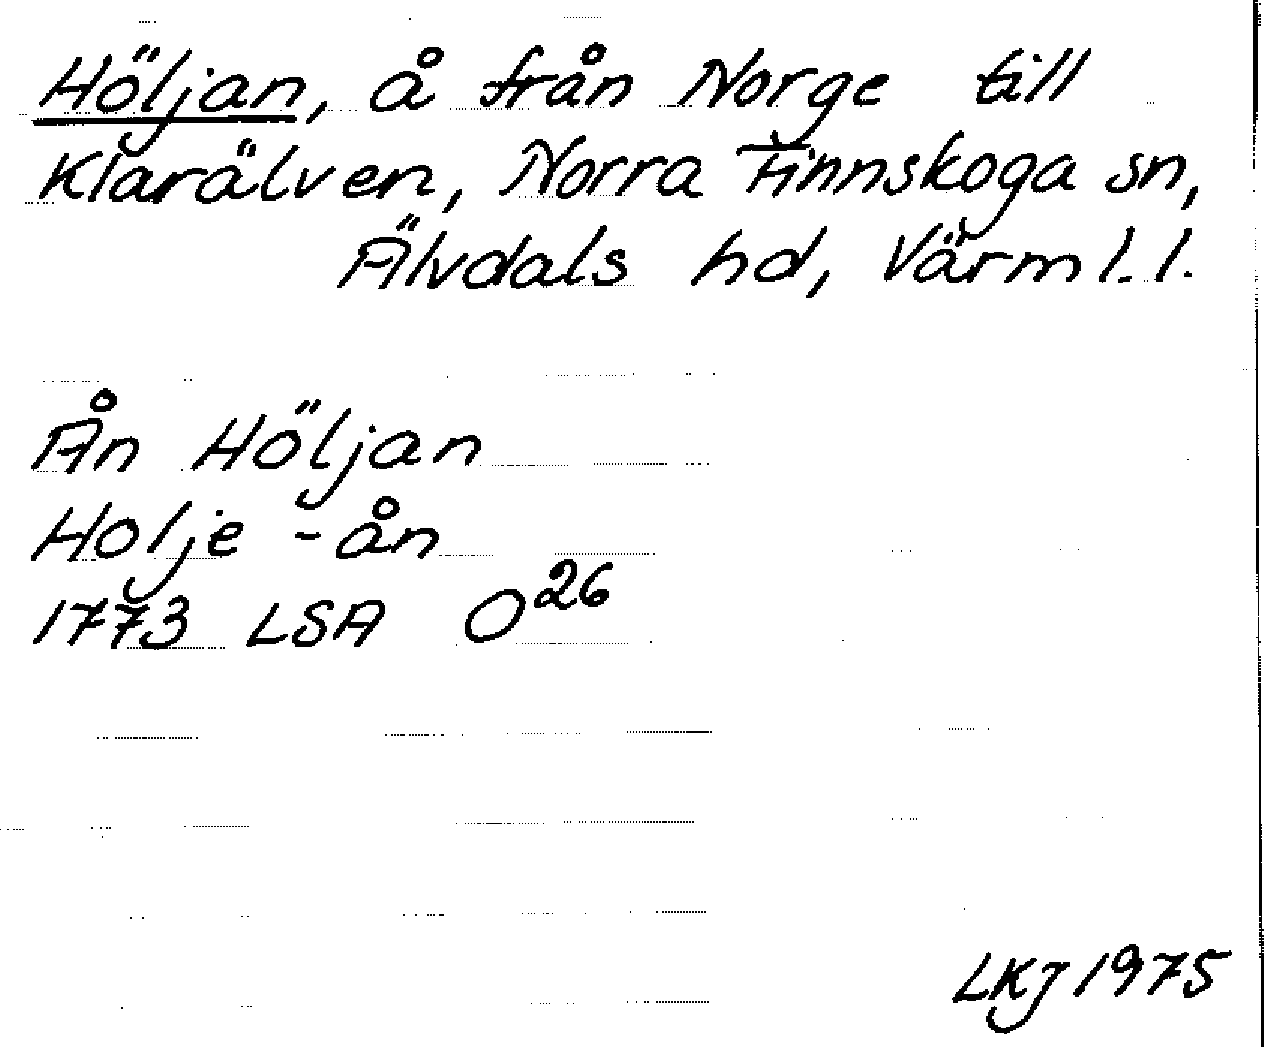 Höljan, å från Norge till
Klarälven, Norra Finnskoga sn,
Älvdals hd, Värml. l.
Ån Höljan
Holje - ån
1773 LSA O26
LKJ 1975